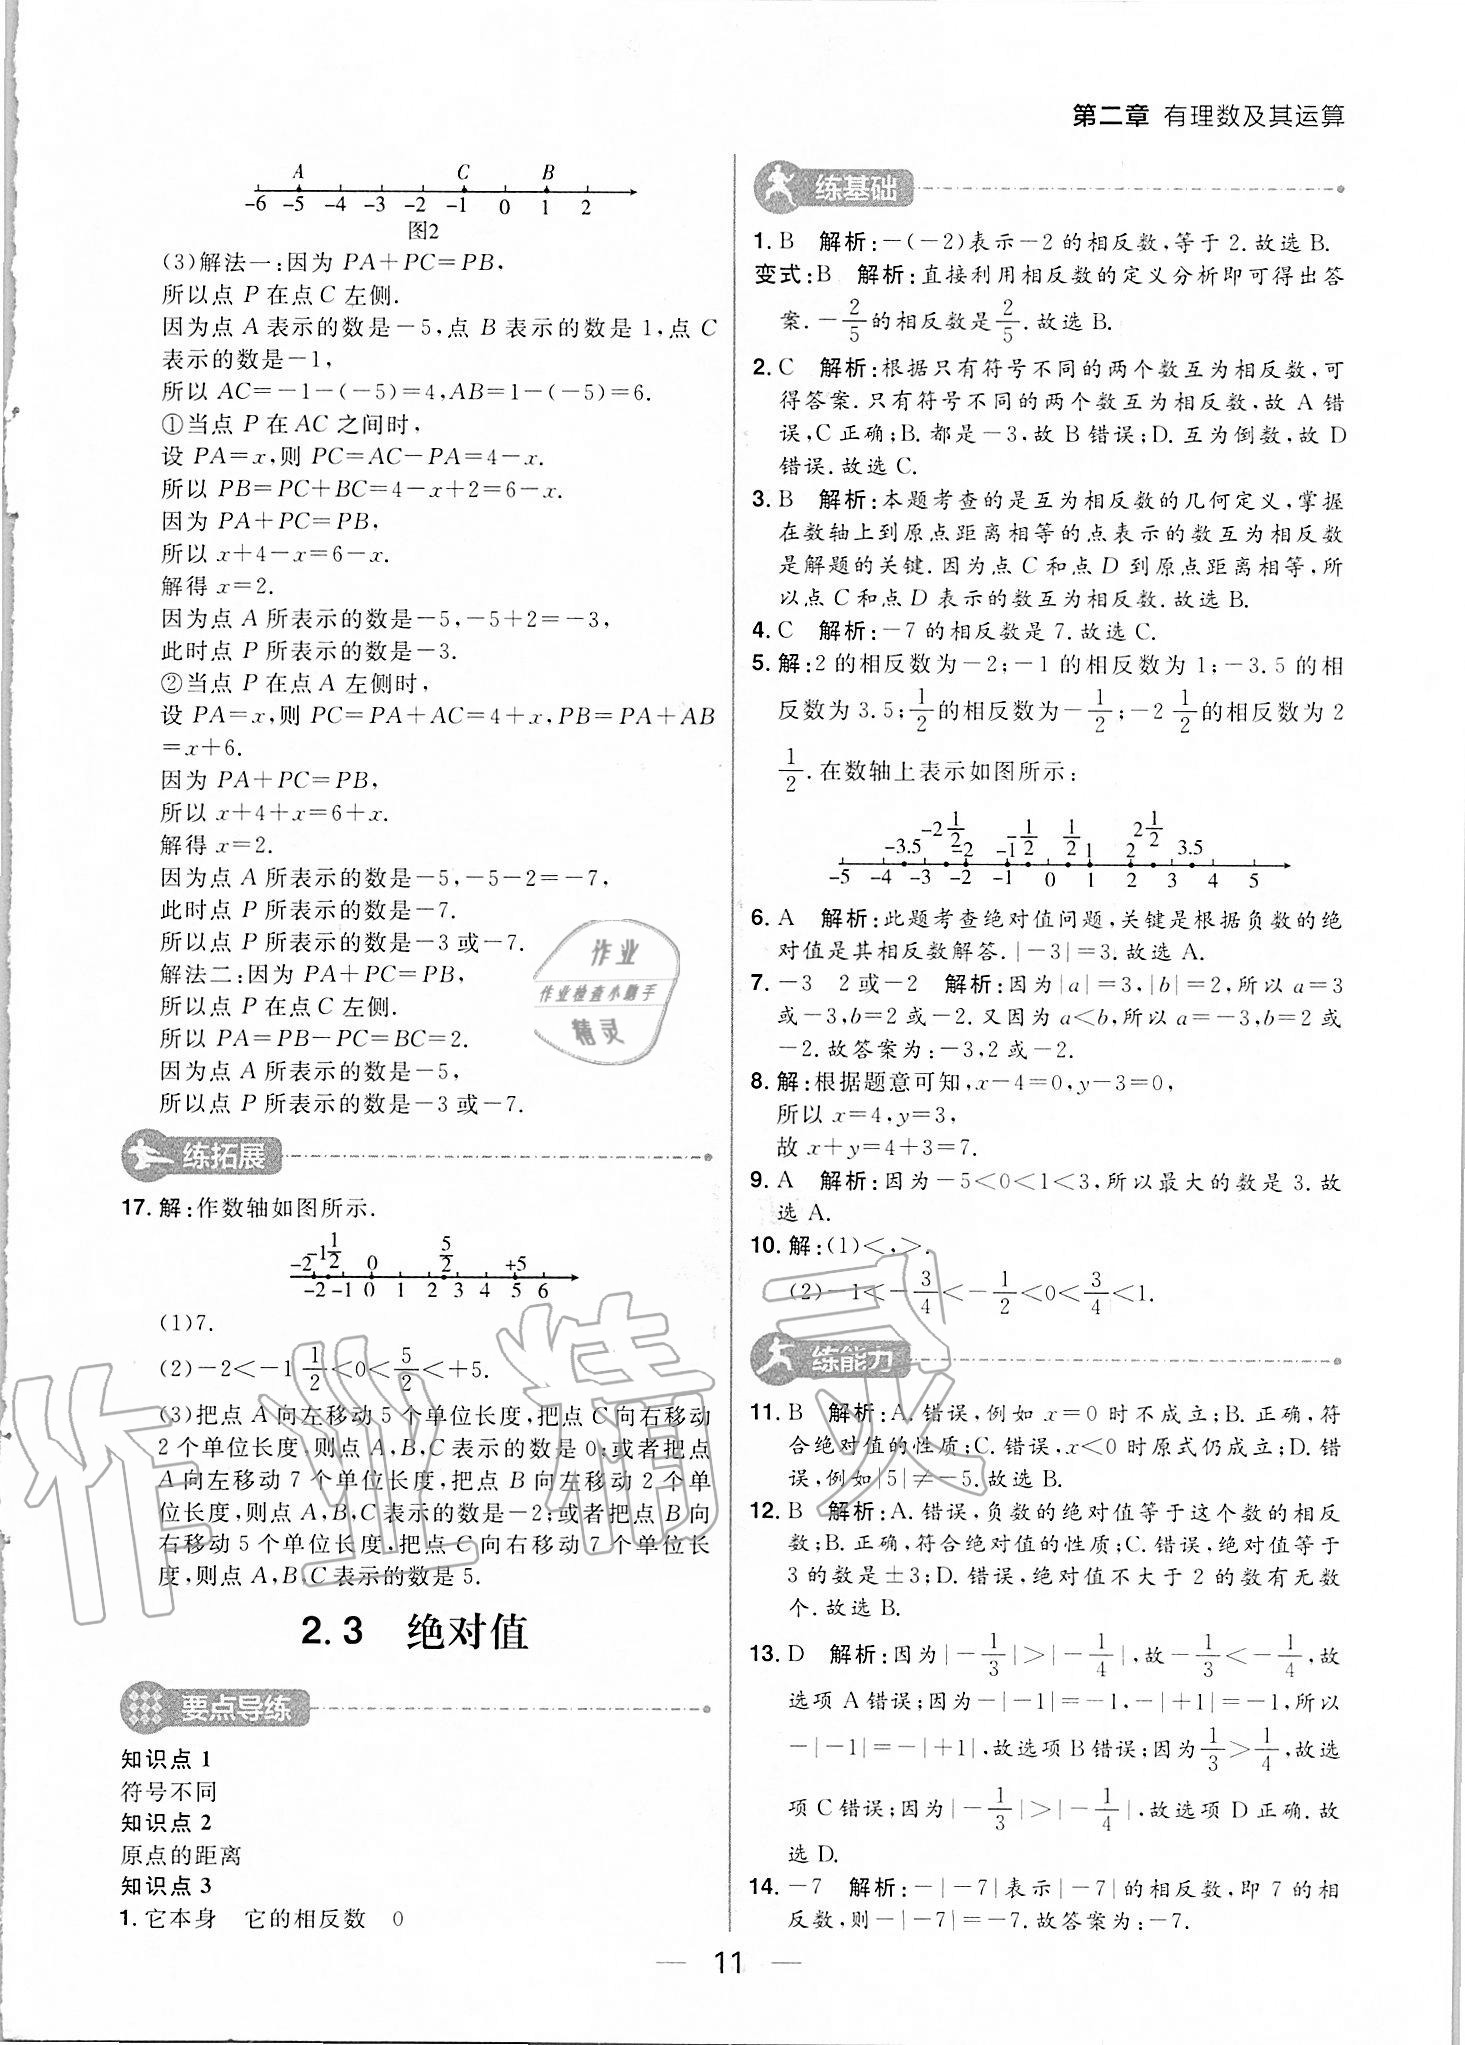 第二章 有理数及其运算
A C B
-6 -5 -4 -3 -2 -1 0 1 2
图2
(3)解法一:因为 PA+PC=PB,
所以点 P 在点 C 左侧.
因为点 A 表示的数是-5,点 B 表示的数是 1,点 C
表示的数是-1,
所以 AC=-1-(-5)=4,AB=1-(-5)=6.
①当点 P 在 AC 之间时,
设 PA=x,则 PC=AC-PA=4-x.
所以 PB=PC+BC=4-x+2=6-x.
因为 PA+PC=PB,
所以 x+4-x=6-x.
解得 x=2.
因为点 A 所表示的数是-5,-5+2=-3,
此时点 P 所表示的数是-3.
②当点 P 在点 A 左侧时,
设 PA=x,则 PC=PA+AC=4+x,PB=PA+AB
=x+6.
因为 PA+PC=PB,
所以 x+4+x=6+x.
解得 x=2.
因为点 A 所表示的数是-5,-5-2=-7,
此时点 P 所表示的数是-7.
所以点 P 所表示的数是-3或-7.
解法二:因为 PA+PC=PB,
所以点 P 在点C 左侧.
所以 PA=PB-PC=BC=2.
因为点 A 所表示的数是-5,
所以点 P 所表示的数是-3或-7.
练拓展
17.解:作数轴如图所示.
-2 -1 1/2 0 5/2 +5
-2 -1 0 1 2 3 4 5 6
(1)7.
(2)-2<-1 1/2<0<5/2<+5.
(3)把点 A 向左移动 5 个单位长度,把点 C 向右移动
2个单位长度,则点 A,B,C 表示的数是 0;或者把点
A 向左移动 7 个单位长度,把点 B 向左移动 2 个单
位长度,则点 A,B,C 表示的数是-2;或者把点 B 向
右移动 5 个单位长度,把点 C 向右移动 7 个单位长
度,则点 A,B,C 表示的数是 5.
2.3 绝对值
要点导练
知识点 1
符号不同
知识点 2
原点的距离
知识点 3
1.它本身 它的相反数 0
练基础
1.B 解析:-(-2)表示-2 的相反数,等于 2.故选 B.
变式:B 解析:直接利用相反数的定义分析即可得出答
案.-2/5的相反数是2/5.故选 B.
2.C 解析:根据只有符号不同的两个数互为相反数,可
得答案.只有符号不同的两个数互为相反数,故 A 错
误,C 正确;B.都是-3,故 B 错误;D.互为倒数,故 D
错误.故选 C.
3.B 解析:本题考查的是互为相反数的几何定义,掌握
在数轴上到原点距离相等的点表示的数互为相反数
是解题的关键.因为点 C 和点 D 到原点距离相等,所
以点 C 和点 D 表示的数互为相反数.故选 B.
4.C 解析:-7 的相反数是 7.故选 C.
5.解:2 的相反数为-2;-1 的相反数为 1;-3.5 的相
反数为 3.5;1/2的相反数为-1/2;-2 1/2的相反数为 2
1/2.在数轴上表示如图所示:
-3.5 -2 1/2 -2 -1 -1/2 1/2 1 2 2 1/2 3.5
-5 -4 -3 -2 -1 0 1 2 3 4 5
6.A 解析:此题考查绝对值问题,关键是根据负数的绝
对值是其相反数解答.|-3|=3.故选 A.
7.-3 2或-2 解析:因为|a|=3,|b|=2,所以 a=3
或-3,b=2 或-2.又因为 a<b,所以 a=-3,b=2 或
-2.故答案为:-3,2 或-2.
8.解:根据题意可知,x-4=0,y-3=0,
所以 x=4,y=3,
故 x+y=4+3=7.
9.A 解析:因为-5<0<1<3,所以最大的数是 3.故
选 A.
10.解:(1)<,>.
(2)-1<-3/4<-1/2<0<3/4<1.
练能力
11.B 解析:A.错误,例如 x=0 时不成立;B.正确,符
合绝对值的性质;C.错误,x<0 时原式仍成立;D.错
误,例如|5|≠-5.故选 B.
12.B 解析:A.错误,负数的绝对值等于这个数的相反
数;B.正确,符合绝对值的性质;C.错误,绝对值等于
3 的数是±3;D.错误,绝对值不大于 2 的数有无数
个.故选 B.
13.D 解析:因为|-1/3|>|-1/4|,故-1/3<-1/4,故
选项 A 错误;因为-|-1|=-1,-|+1|=-1,所以
-|-1|=-|+1|,故选项 B 错误;因为1/3>1/4,故选
项 C 错误;因为|-1/3|>|-1/4|,故选项 D 正确.故
选 D.
14.-7 解析:-|-7|表示|-7|的相反数,即 7 的相
反数,则-|-7|=-7.故答案为:-7.
作业
作业检查小助手
精灵
作业精灵
— 11 —